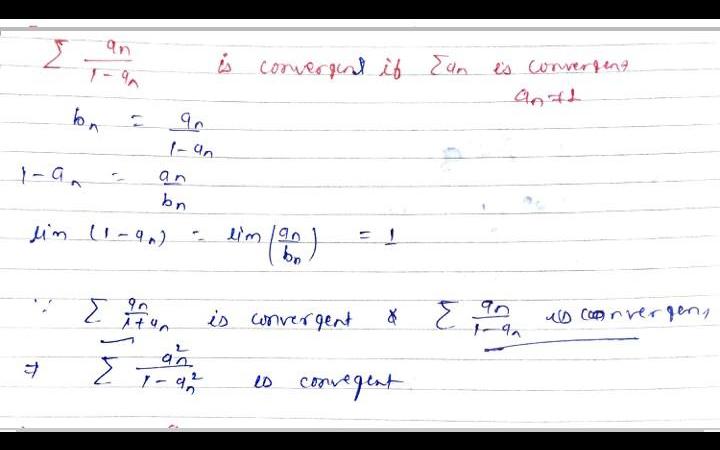 Σ an/(1-an) is convergent if Σan is convergent
an≠1
bn = an/(1-an)
1-an = an/bn
lim (1-an) = lim (an/bn) = 1
∵ Σ an/(1+an) is convergent & Σ an/(1-an) is convergen,
⇒ Σ an²/(1-an²) is convegent